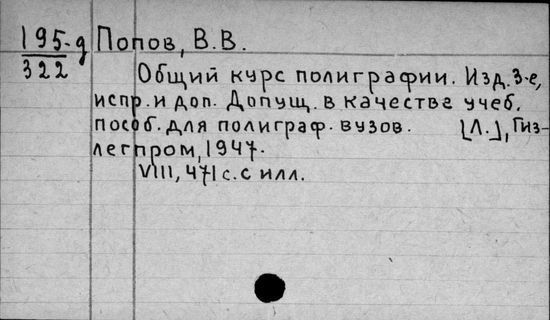 195-д Попов, В.В.
322
Общий курс полиграфии. Изд. 3-е,
испр. и доп. Допущ. в качестве учеб.
пособ. для полиграф. вузов. [Л.], Гиз-
легпром, 1947.
VIII, 471 с. с илл.